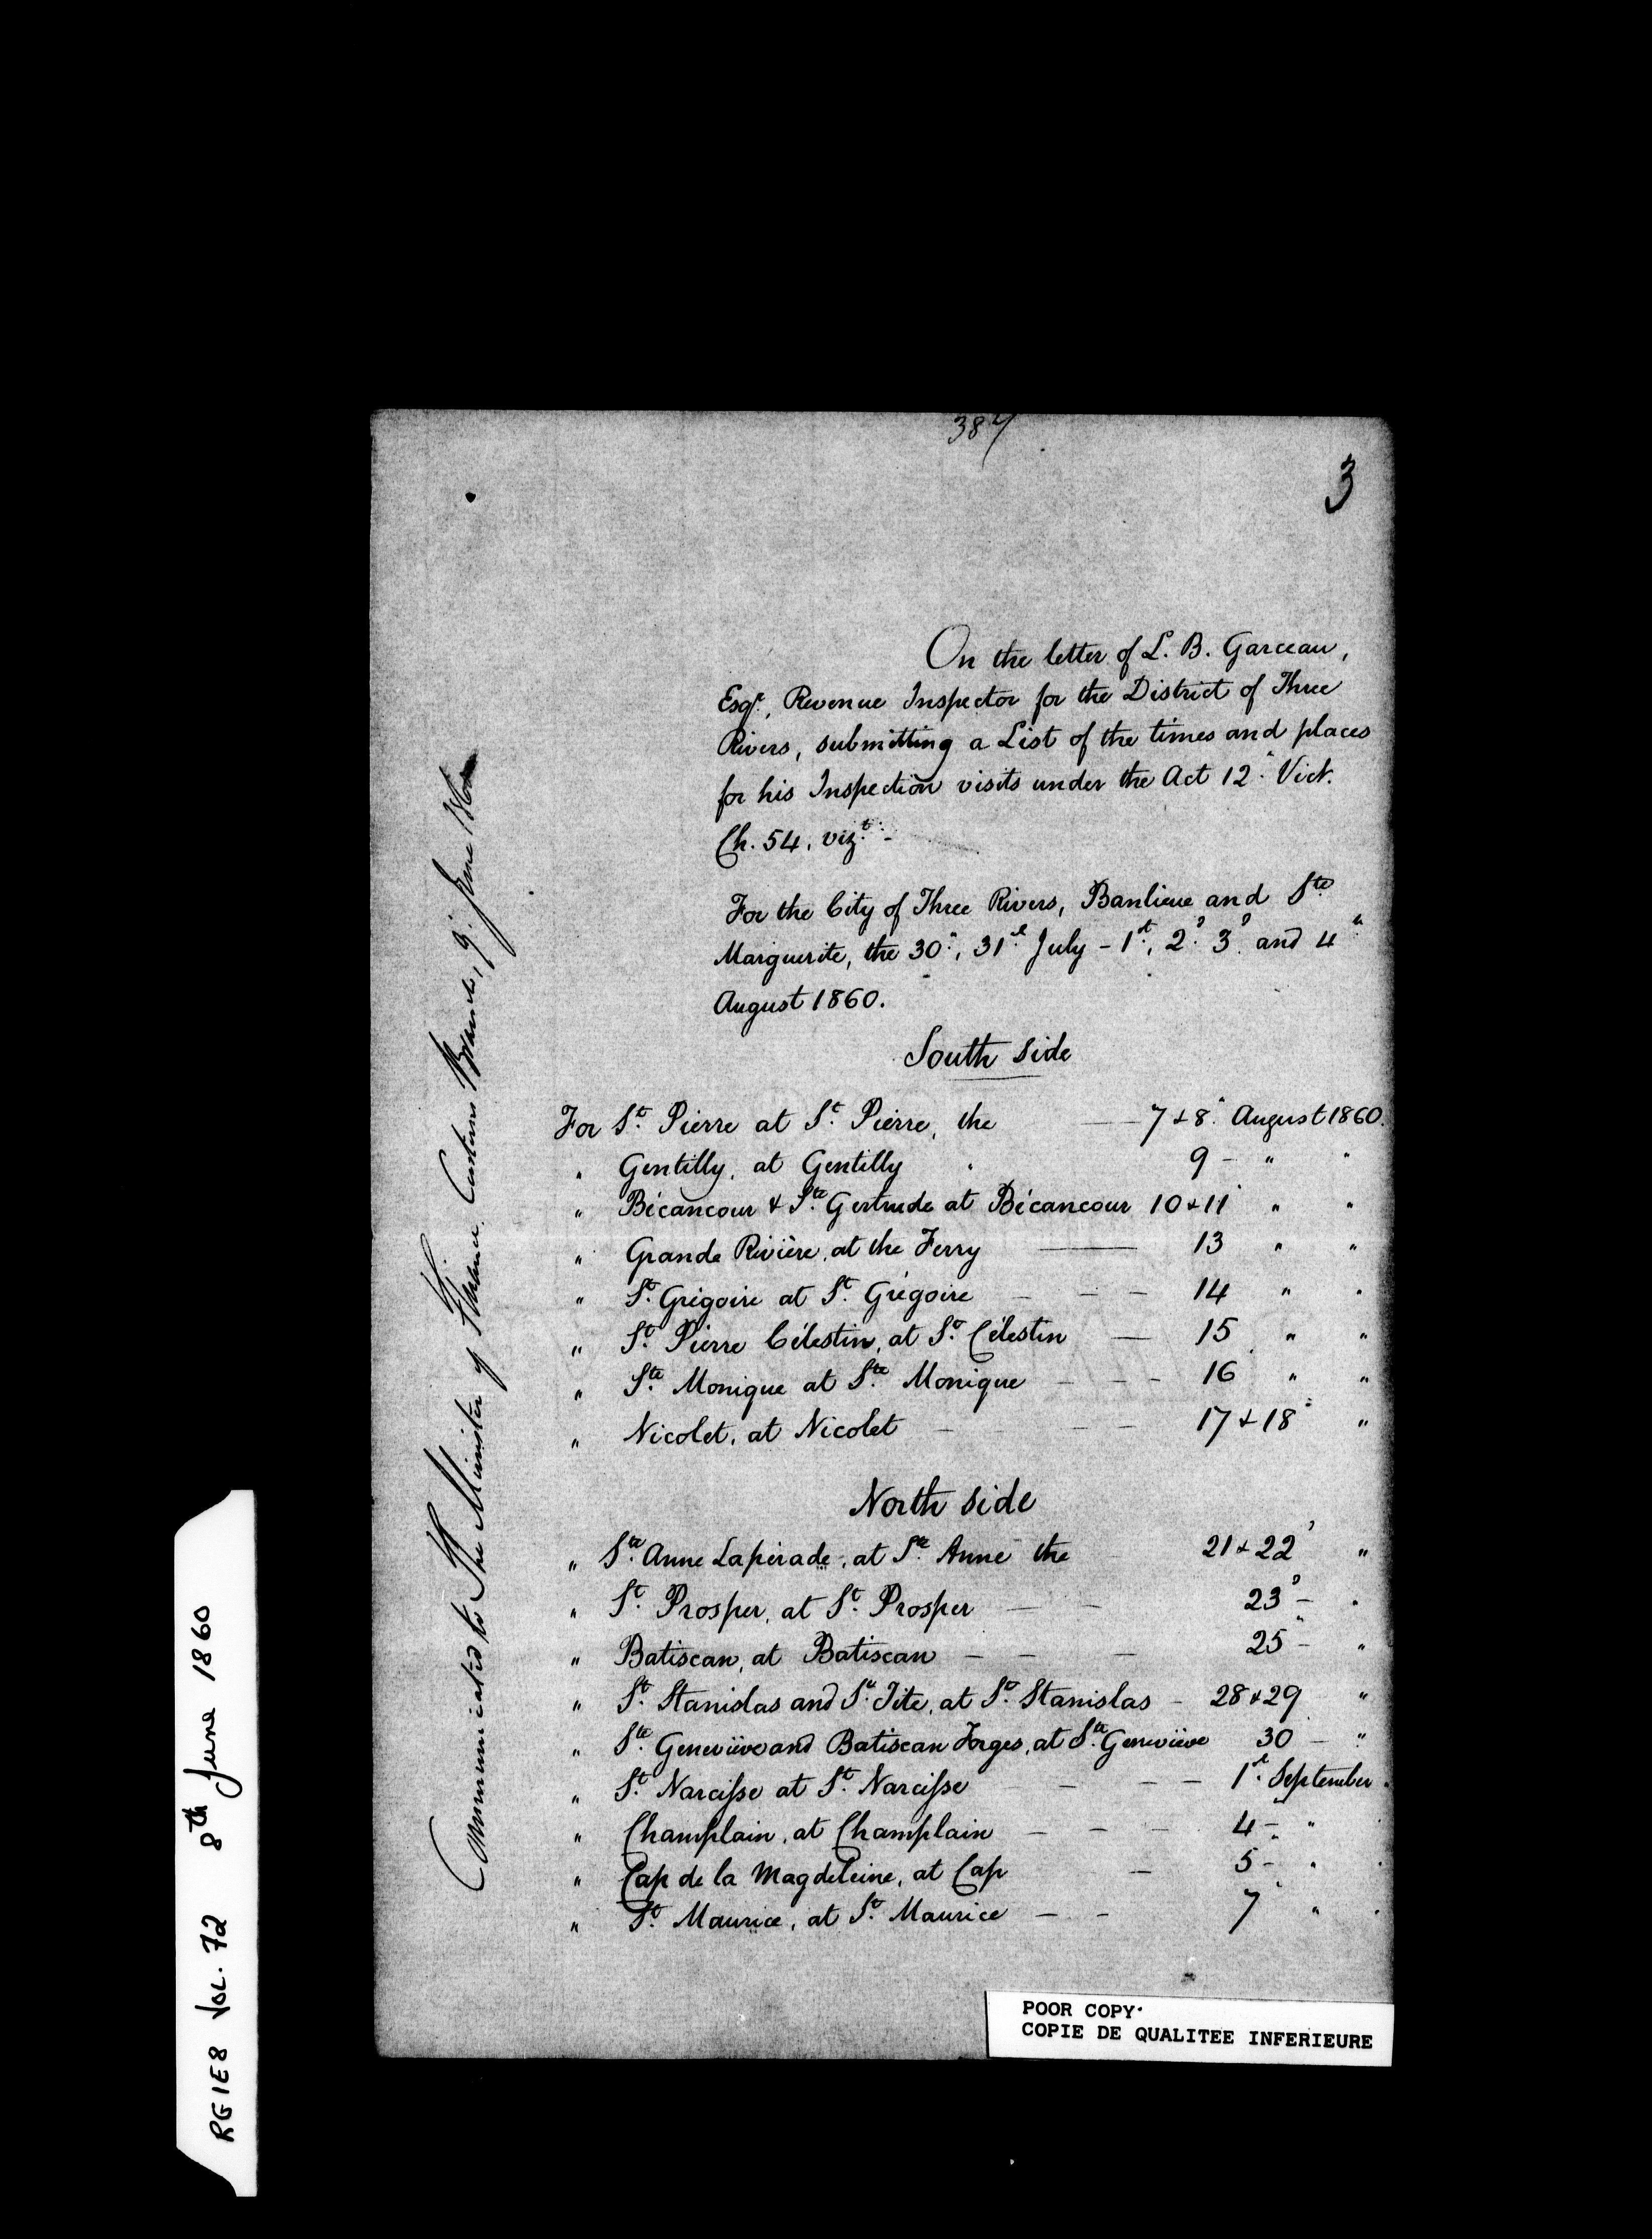 387
3
On the letter of L. B. Garceau,
Esqr., Revenue Inspector for the District of Three
Rivers, submitting a List of the times and places
for his Inspection visits under the Act 12" Vict.
Ch. 54, vizt: -
For the City of Three Rivers, Banlieue and Ste
Marguerite, the 30", 31st July - 1st, 2d 3d and 4"
August 1860.
South side
For St. Pierre at St. Pierre, the — 7 & 8" August 1860.
" Gentilly, at Gentilly " 9 - " "
" Bécancour & Ste. Gertrude at Bécancour 10 & 11" " "
" Grande Rivière, at the Ferry — 13 " "
" St. Grégoire at St. Grégoire - - - 14 " "
" St. Pierre Célestin, at St. Célestin — 15 " "
" Ste. Monique at Ste. Monique - - - 16 " "
" Nicolet, at Nicolet - - - 17 & 18" "
North side
" Ste. Anne Lapérade, at Ste. Anne the 21 & 22d "
" St. Prosper, at St. Prosper — - 23d - "
" Batiscan, at Batiscan - - - 25" - "
" St. Stanislas and St. Tite, at St. Stanislas - 28 & 29 "
" Ste. Geneviève and Batiscan Forges, at Ste. Geneviève 30 - "
" St. Narcisse at St. Narcisse - - - - 1st. September "
" Champlain, at Champlain - - - 4 - " "
" Cap de la Magdeleine, at Cap - 5" - " "
" St. Maurice, at St. Maurice - - 7" " "
Communicated to The Minister of Finance, Customs Branch, 9" June 1860
RG1E8 VOL. 72 8th June 1860
POOR COPY
COPIE DE QUALITEE INFERIEURE